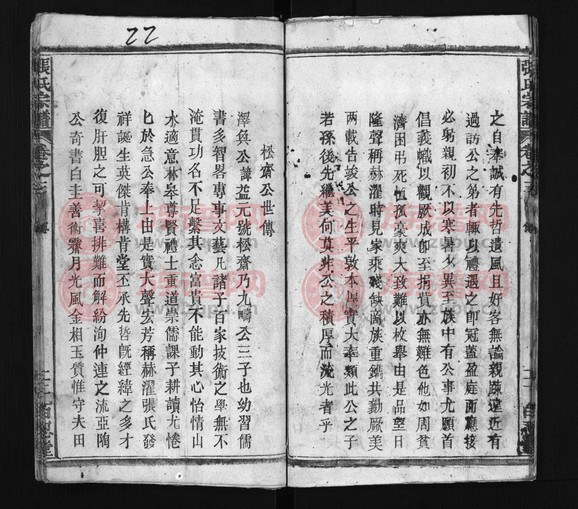 22
張氏宗譜
之自奉誠有先哲遺風且好客無論親疎遠近有
過訪公之第者輒以禮遇之即冠蓋盈庭而廳接
必躬親初不以寒暑少異至族中有公事尤願首
倡義幟以觀厥成即至捐貲亦無難色他如周貧
濟困弔死恤孤豪爽大致難以枚舉由是品望日
隆聲稱赫濯時見家乘殘缺商族重鐫共勷厥美
兩載告竣公之生平敦本厚實大率類此公之子
若孫後先繼美何莫非公之積厚而流光者乎
張氏宗譜
松齋公世傳
澤奐公諱益元號松齋乃九疇公三子也幼習儒
書多智畧專事文藝凡諸子百家技術之學無不
淹貫功名不足繫其念富貴不能動其心怡情山
水適意林泉尊賢禮士重道崇儒課子耕讀尤惓
匕於急公奉上由是實大聲宏芳稱赫濯張氏發
祥誕生英傑肯構肯堂丕承先哲既經緯之多才
復肝胆之可挈喜排難而解紛洵仲連之流亞陶
公奇書白圭善術霽月光風金相玉質惟守夫田